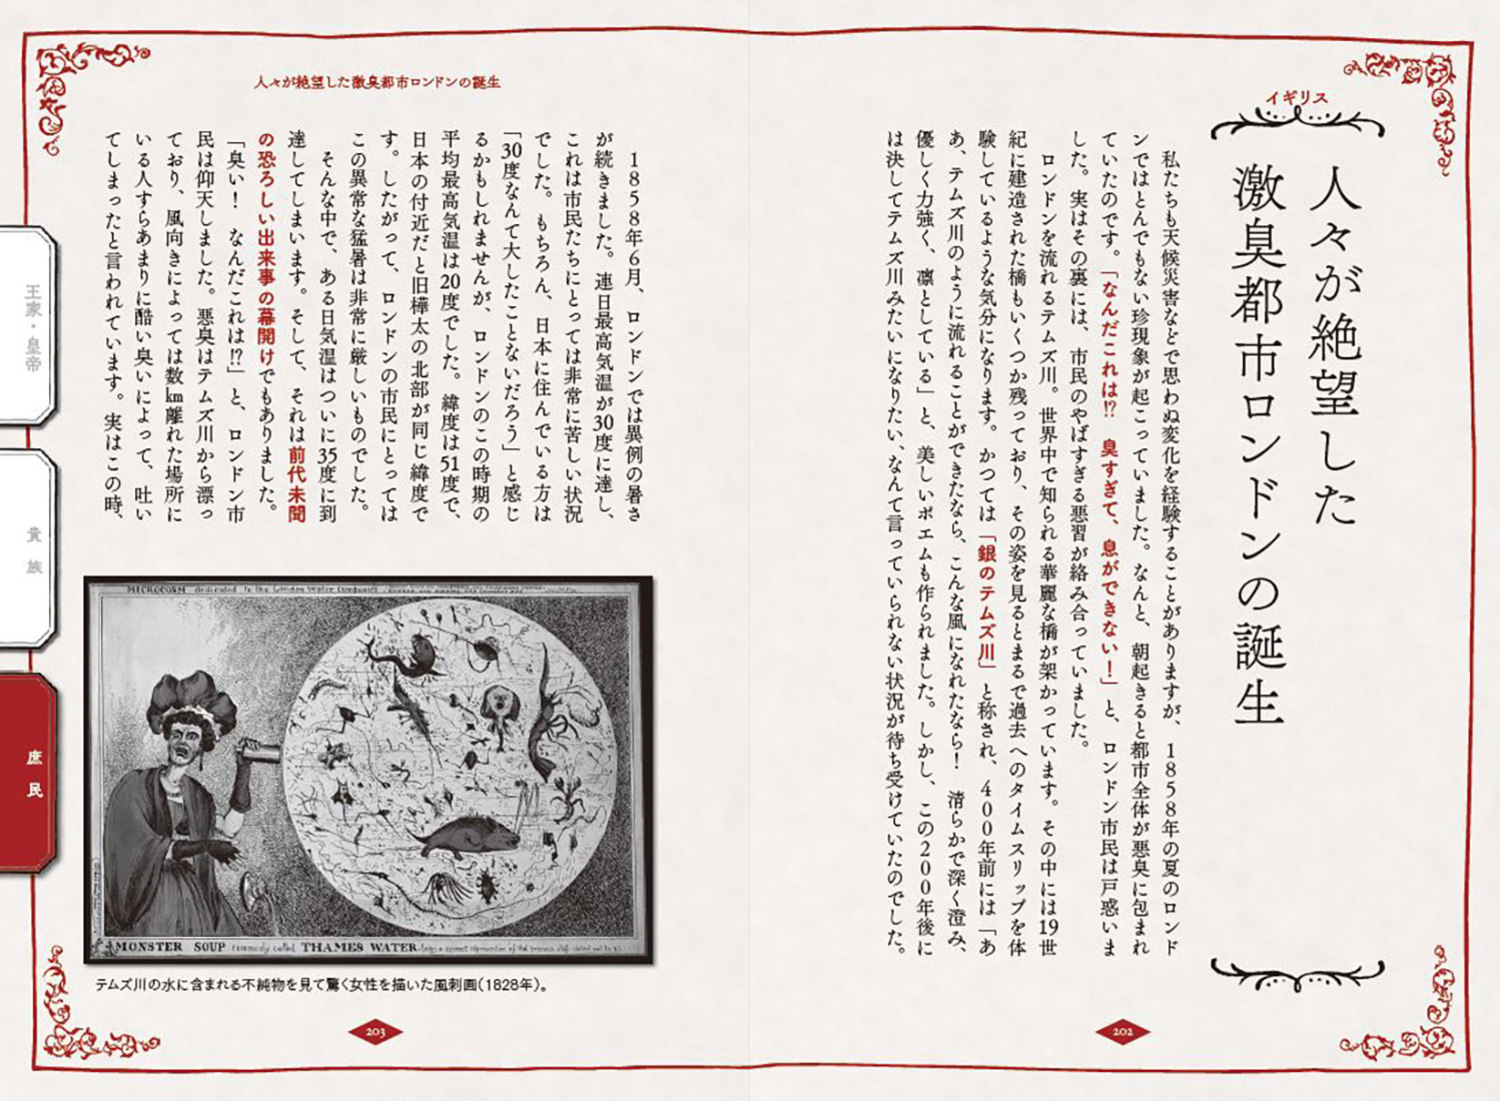 イギリス
人々が絶望した
激臭都市ロンドンの誕生
私たちも天候災害などで思わぬ変化を経験することがありますが、1858年の夏のロンド
ンではとんでもない珍現象が起こっていました。なんと、朝起きると都市全体が悪臭に包まれ
ていたのです。「なんだこれは!? 臭すぎて、息ができない！」と、ロンドン市民は戸惑いま
した。実はその裏には、市民のやばすぎる悪習が絡み合っていました。
ロンドンを流れるテムズ川。世界中で知られる華麗な橋が架かっています。その中には19世
紀に建造された橋もいくつか残っており、その姿を見るとまるで過去へのタイムスリップを体
験しているような気分になります。かつては「銀のテムズ川」と称され、400年前には「あ
あ、テムズ川のように流れることができたなら、こんな風になれたなら！ 清らかで深く澄み、
優しく力強く、凛としている」と、美しいポエムも作られました。しかし、この200年後に
は決してテムズ川みたいになりたい、なんて言っていられない状況が待ち受けていたのでした。
202
人々が絶望した激臭都市ロンドンの誕生
1858年6月、ロンドンでは異例の暑さ
が続きました。連日最高気温が30度に達し、
これは市民たちにとっては非常に苦しい状況
でした。もちろん、日本に住んでいる方は
「30度なんて大したことないだろう」と感じ
るかもしれませんが、ロンドンのこの時期の
平均最高気温は20度でした。緯度は51度で、
日本の付近だと旧樺太の北部が同じ緯度で
す。したがって、ロンドンの市民にとっては
この異常な猛暑は非常に厳しいものでした。
そんな中で、ある日気温はついに35度に到
達してしまいます。そして、それは前代未聞
の恐ろしい出来事の幕開けでもありました。
「臭い！ なんだこれは!?」と、ロンドン市
民は仰天しました。悪臭はテムズ川から漂っ
ており、風向きによっては数㎞離れた場所に
いる人すらあまりに酷い臭いによって、吐い
てしまったと言われています。実はこの時、
MICROCOSM dedicated to the London Water Companies
MONSTER SOUP commonly called THAMES WATER
テムズ川の水に含まれる不純物を見て驚く女性を描いた風刺画（1828年）。
203
王家・皇帝
貴族
庶民